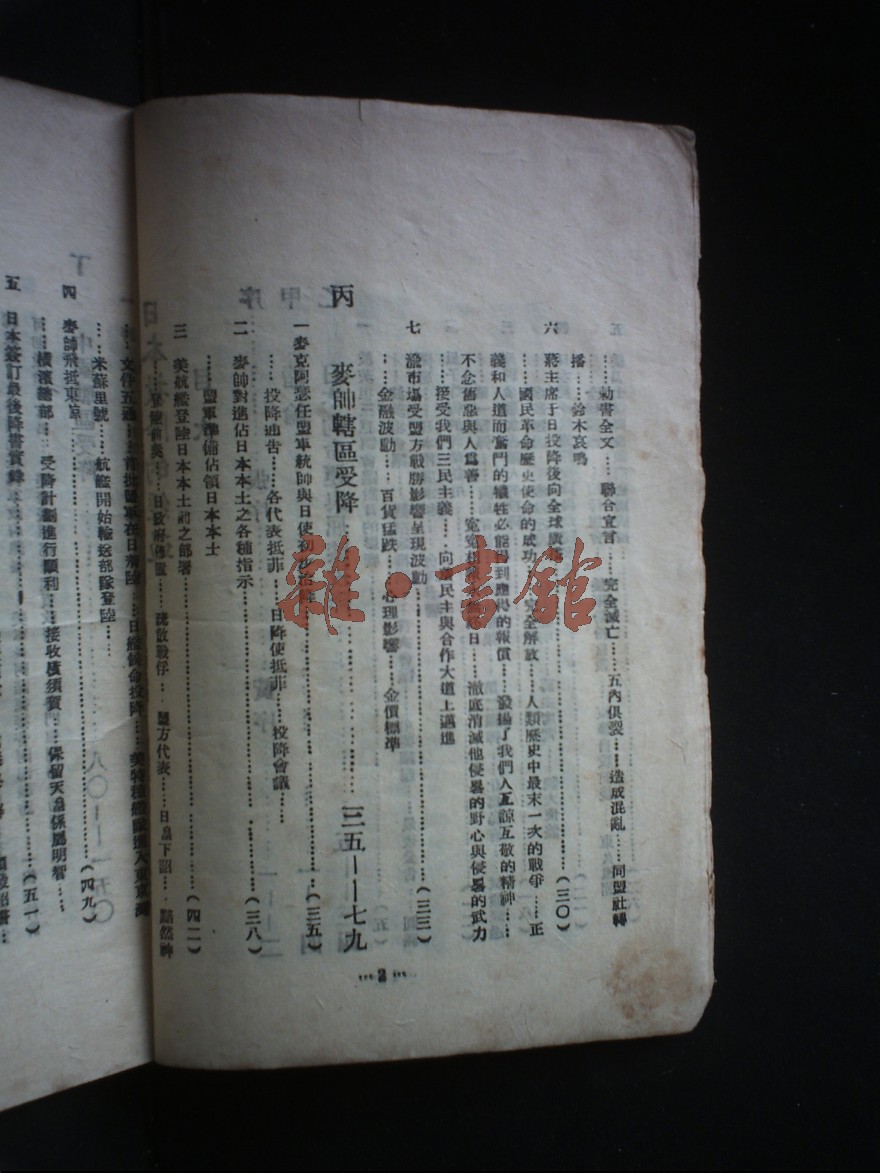 勅書全文……聯合宣言……完全滅亡……五內俱裂……造成混亂……同盟社轉
播……鈴木哀鳴
六 蔣主席于日投降後向全球廣播……(三〇)
……國民革命歷史使命的成功……完全解放……人類歷史中最末一次的戰爭……正
義和人道而奮鬥的犧牲必能得到應得的報償……發揚了我們人互諒互敬的精神……
不念舊惡與人爲善……日……澈底消滅他侵畧的野心與侵畧的武力
……接受我們三民主義……向着民主與合作大道上邁進
七 滬市場受盟方戰勝影響呈現波動……(三三)
……金融波動……百貨猛跌……心理影響……金價標準
丙 麥帥轄區受降……三五——七九
一 麥克阿瑟任盟軍統帥與日使初步洽降……(三五)
……投降通告……各代表抵菲……日降使抵菲……投降會議……
二 麥帥對進佔日本本土之各種指示……(三八)
……盟軍準備佔領日本本土
三 美航艦登陸日本本土前之部署……(四二)
……日政府佈置……疏散戰俘……盟方代表……日皇下詔……黯然神
文件五通……首批盟軍在日飛陸……日艦候命投降……美特種艦隊進入東京灣
……米蘇里號……航艦開始輸送部隊登陸……
四 麥帥飛抵東京……(四九)
……橫濱總部……受降計劃進行順利……接收橫須賀……保留天皇係屬明智……
五 日本簽訂最後降書實錄……(五一)
…2…
雜·書館